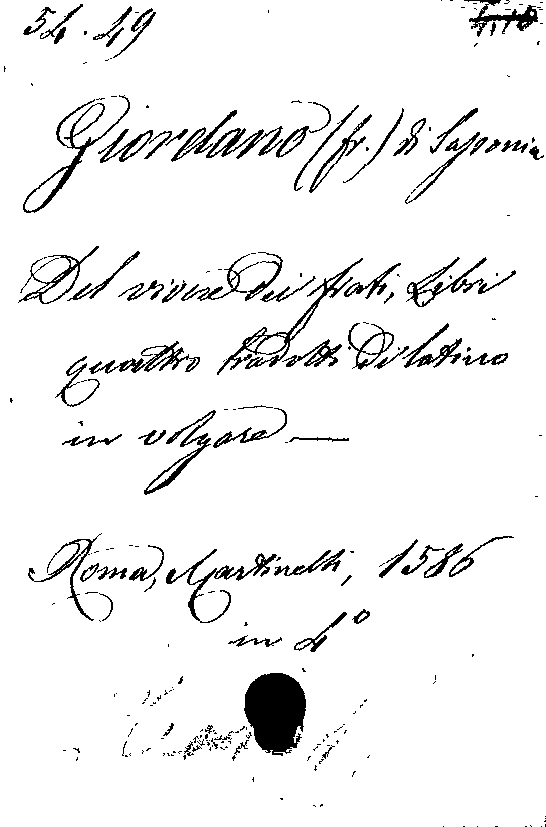 54. 49
Giordano (fr.) di Sassonia
Del vivere dei frati, Libri
quattro tradotti di latino
in volgare —
Roma, Martinelli, 1586
in 4°